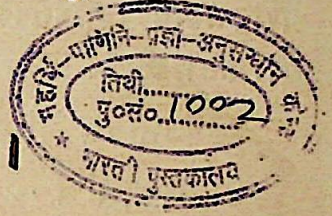 महर्षि-पाणिनि-प्रज्ञा-अनुसन्धान केन्द्र
तिथी..............
पु०सं०..1002
* भारती पुस्तकालय